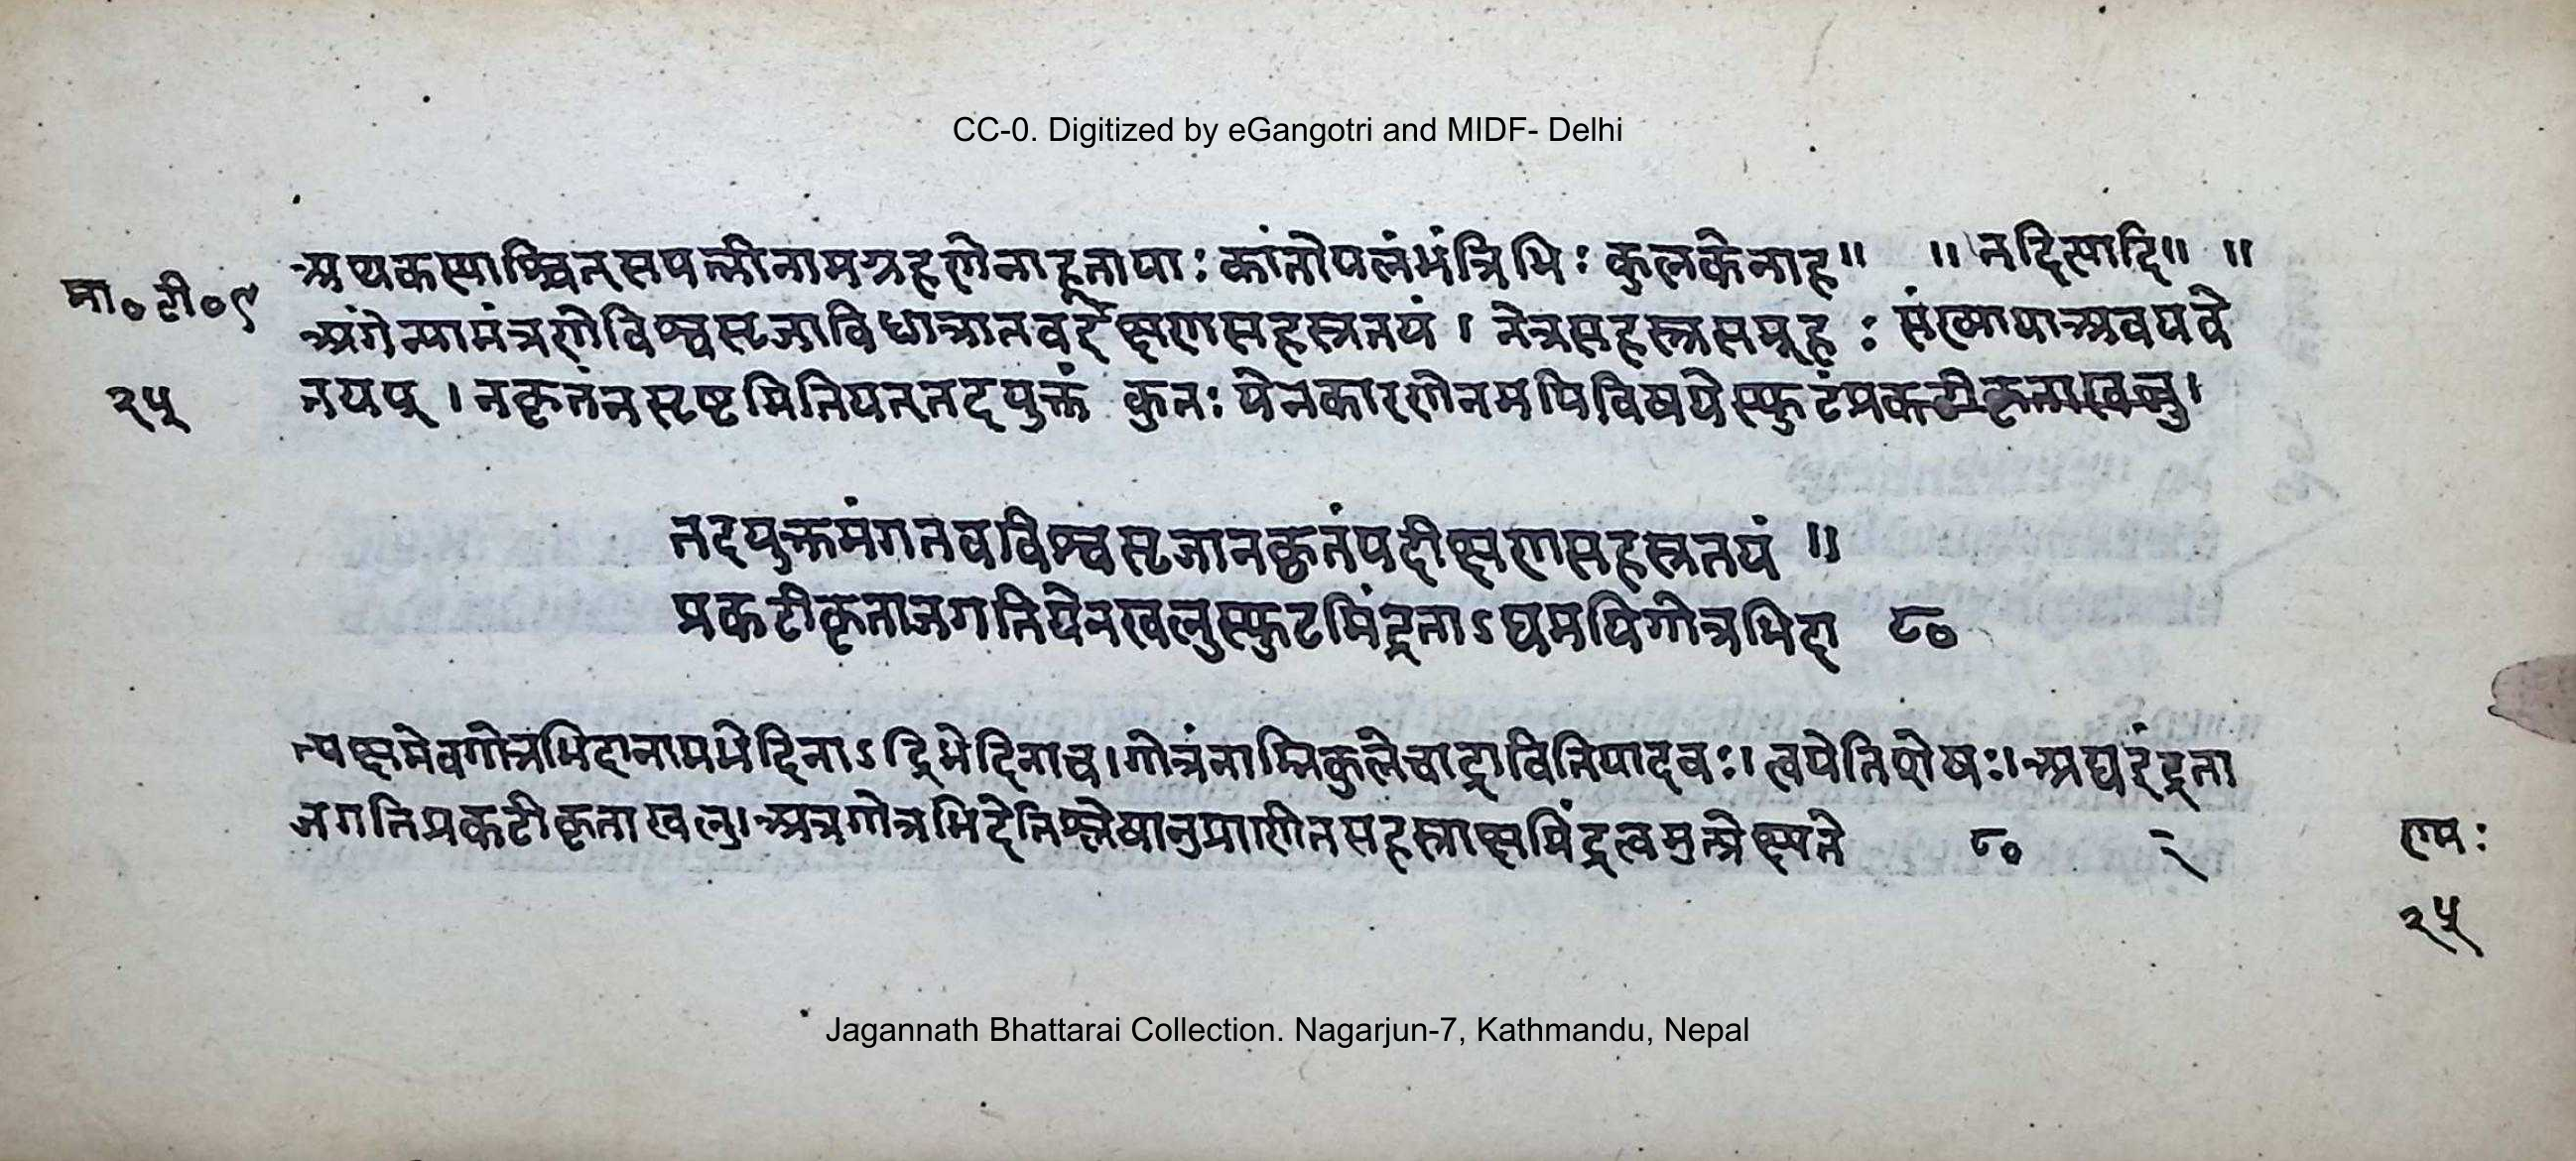 CC-0. Digitized by eGangotri and MIDF- Delhi
अथकस्याश्चित्सपत्नीनामग्रहणेनाहूतायाः कांतोपलंभंत्रिभिः कुलकेनाह॥ ॥ तदित्यादि॥ ॥
मा॰टी॰९ अंगेत्यामंत्रणेविश्वसृजाविधात्रातवईक्षणसहस्रतयं । नेत्रसहस्रसमूहः संख्यायाअवयवे
२५ तयप् । नकृतंनसृष्टमितियत्तदयुक्तं कुतः येनकारणेनमयिविषयेस्फुटंप्रकटीकृताखलु।
तदयुक्तमंगतवविश्वसृजानकृतंयदीक्षणसहस्रतयं ॥
प्रकटीकृताजगतियेनखलुस्फुटमिंद्रताऽद्यमयिगोत्रभिदा ८०
त्यक्षमेवगोत्रभिदानामभेदिनाऽद्रिभेदिनाच।गोत्रंनाम्निकुलेचाद्रावितियादवः।त्वयेतिशेषः।अद्यइंद्रता
जगतिप्रकटीकृताखलु।अत्रगोत्रभिदेतिश्लेषानुप्राणितसहस्राक्षमिंद्रत्वमुत्प्रेक्ष्यते ८०
रामः
२५
Jagannath Bhattarai Collection. Nagarjun-7, Kathmandu, Nepal